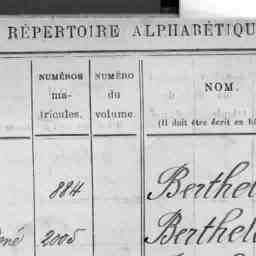 RÉPERTOIRE ALPHABÉTIQU
NUMÉROS
ma-
tricules.
NUMÉRO
du
volume.
NOM.
(Il doit être écrit en bâ
884 Berthel
né 2005 Berthel